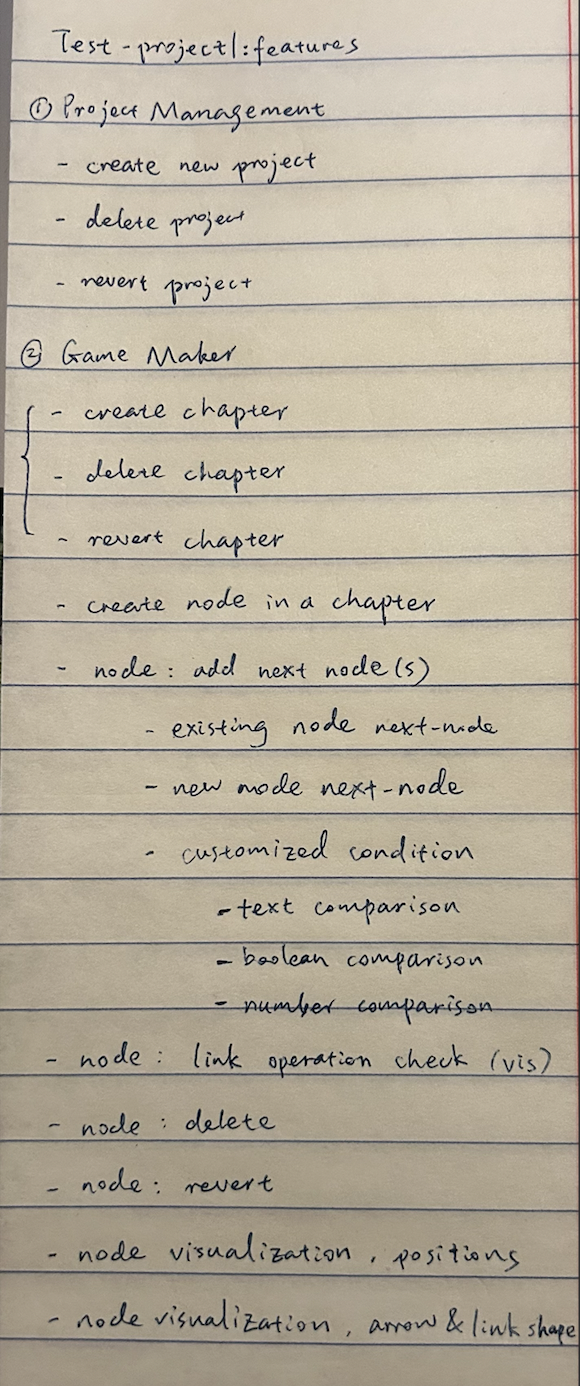 Test-project1: features
① Project Management
- create new project
- delete project
- revert project
② Game Maker
- create chapter
- delete chapter
- revert chapter
- create node in a chapter
- node: add next node(s)
- existing node next-node
- new mode next-node
- customized condition
- text comparison
- boolean comparison
- number comparison
- node: link operation check (vis)
- node: delete
- node: revert
- node visualization, positions
- node visualization, arrow & link shape